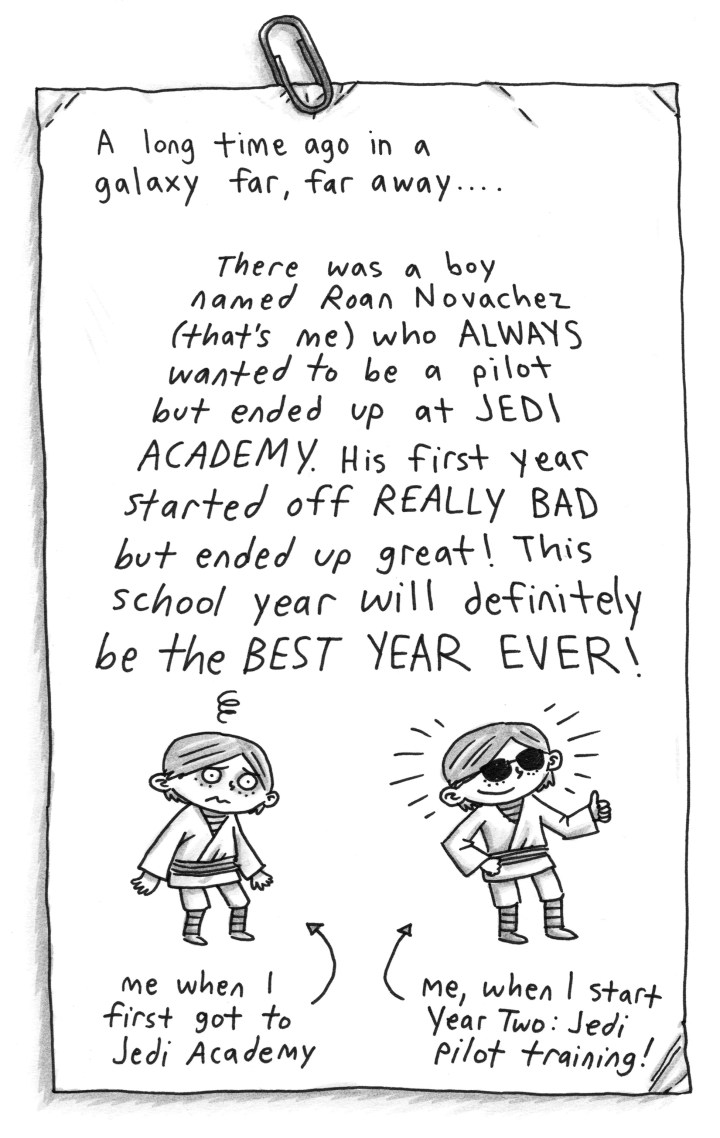 A long time ago in a
galaxy far, far away....
There was a boy
named Roan Novachez
(that's me) who ALWAYS
wanted to be a pilot
but ended up at JEDI
ACADEMY. His first year
started off REALLY BAD
but ended up great! This
school year will definitely
be the BEST YEAR EVER!
me when I
first got to
Jedi Academy
me, when I start
Year Two: Jedi
pilot training!